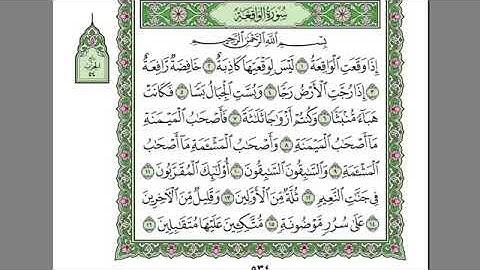 سُورَةُ الوَاقِعَةِ
بِسْمِ اللَّهِ الرَّحْمَٰنِ الرَّحِيمِ
إِذَا وَقَعَتِ الْوَاقِعَةُ ١ لَيْسَ لِوَقْعَتِهَا كَاذِبَةٌ ٢ خَافِضَةٌ رَّافِعَةٌ
٣ إِذَا رُجَّتِ الْأَرْضُ رَجًّا ٤ وَبُسَّتِ الْجِبَالُ بَسًّا ٥ فَكَانَتْ
هَبَاءً مُّنبَثًّا ٦ وَكُنتُمْ أَزْوَاجًا ثَلَاثَةً ٧ فَأَصْحَابُ الْمَيْمَنَةِ
مَا أَصْحَابُ الْمَيْمَنَةِ ٨ وَأَصْحَابُ الْمَشْأَمَةِ مَا أَصْحَابُ
الْمَشْأَمَةِ ٩ وَالسَّابِقُونَ السَّابِقُونَ ١٠ أُولَٰئِكَ الْمُقَرَّبُونَ ١١
فِي جَنَّاتِ النَّعِيمِ ١٢ ثُلَّةٌ مِّنَ الْأَوَّلِينَ ١٣ وَقَلِيلٌ مِّنَ الْآخِرِينَ
١٤ عَلَىٰ سُرُرٍ مَّوْضُونَةٍ ١٥ مُّتَّكِئِينَ عَلَيْهَا مُتَقَابِلِينَ ١٦
٥٣٤